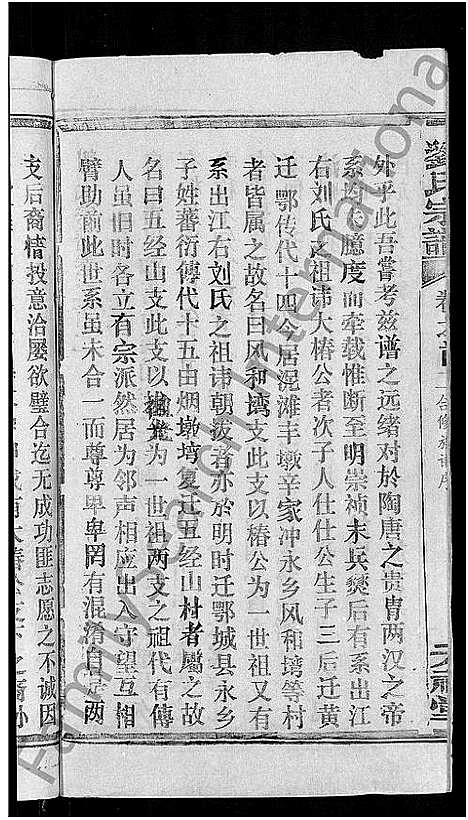 劉氏宗譜
卷之首
合修族譜序
外乎此吾嘗考兹谱之远绪对於陶唐之贵胄两汉之帝
系均以臆度而牵载惟断至明崇祯末兵燹后有系出江
右刘氏之祖讳大椿公者次子人仕仕公生子三后迁黄
迁鄂传代十四今居泥滩丰墩辛家冲永乡风和塆等村
者皆属之故名曰风和塆支此支以椿公为一世祖又有
系出江右刘氏之祖讳朝拔者亦於明时迁鄂城县永乡
子姓蕃衍傳代十五由烟墩塆复迁五经山村者屬之故
名曰五经山支此支以为一世祖两支之祖代有傳
人虽旧时各立有宗派然居为邻声相应出入守望互相
臂助前此世系虽未合一而尊尊卑卑罔有混淆自是两
支后裔情投意洽屡欲璧合迄无成功匪志愿之不诚因
FamilySearch International